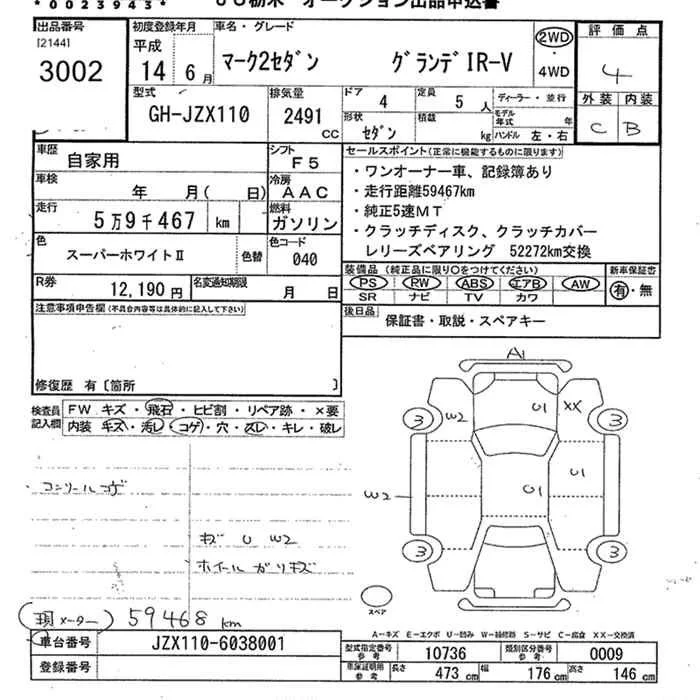 *0023943*
JU栃木 オークション出品申込書
出品番号
[2144]
3002
初度登録年月
平成
14 6月
車名・グレード
マーク2セダン グランデIR-V
2WD
・
4WD
評価点
4
外装 内装
C B
型式
GH-JZX110
排気量
2491
CC
ドア 4
定員 5人
ディーラー・並行
形状 セダン
積載 kg
モデル年式 年
ハンドル 左・右
車歴 自家用
シフト F5
車検 年 月( 日)
冷房 AAC
走行 5万9千467 km
燃料 ガソリン
色 スーパーホワイトⅡ
色替
色コード 040
R券 12,190円
名変通知期限 月 日
セールスポイント(正常に機能するものに限ります)
・ワンオーナー車、記録簿あり
・走行距離59467km
・純正5速MT
・クラッチディスク、クラッチカバー
レリーズベアリング 52272km交換
装備品(純正品に限り○をつけてください)
PS RW ABS エアB AW
SR ナビ TV カワ
新車保証書
有・無
後日品 保証書・取説・スペアキー
注意事項申告欄(不具合内容等は具体的に記入して下さい)
修復歴 有〔箇所 〕
検査員
記入欄
FW キズ・飛石・ヒビ割・リペア跡・×要
内装 キズ・汚レ・コゲ・穴・スレ・キレ・破レ
コンソールコゲ
キズ U W2
ホイールガリキズ
A1
W2 U1 XX
3 3
W2 U1 U1
3 3
スペア
(現メーター) 59468 km
A-キズ E-エクボ U-凹み W-補修跡 S-サビ C-腐食 XX-交換済
車台番号 JZX110-6038001
登録番号
型式指定番号
参考
10736
類別区分番号
参考
0009
車庫証明用
参考
長さ 473 cm 幅 176 cm 高さ 146 cm